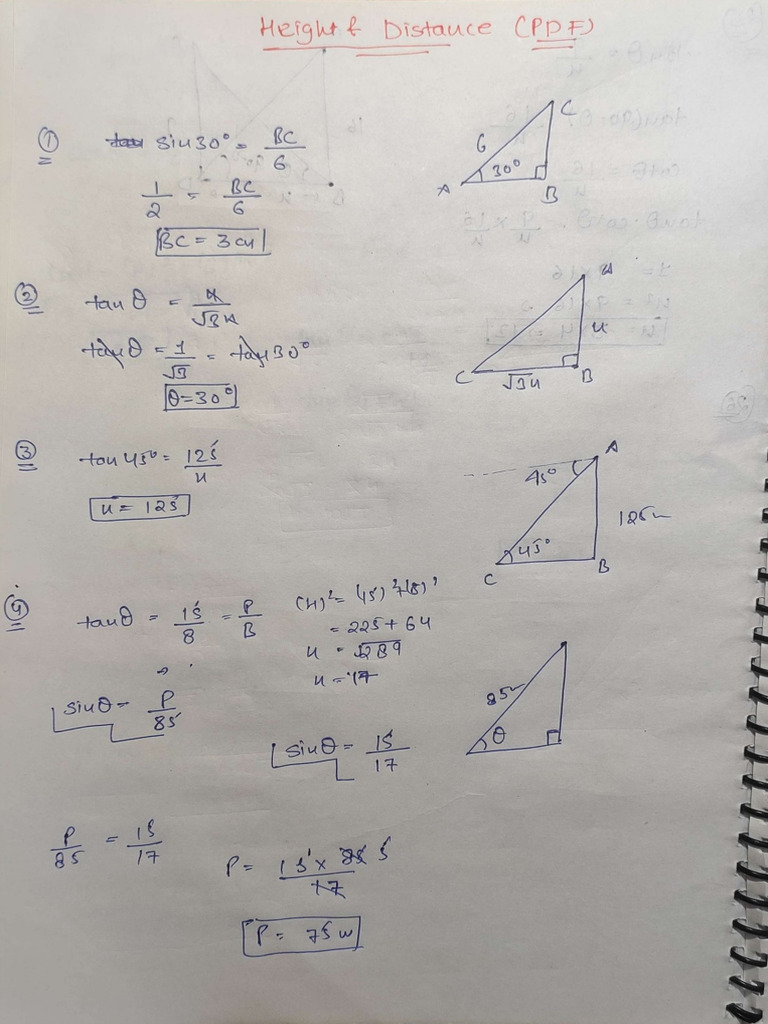 Height & Distance (PDF)
① sin 30° = BC/6
1/2 = BC/6
BC = 3 cm
C
6
30°
A
B
② tan θ = x/√3x
tan θ = 1/√3 = tan 30°
θ = 30°
A
x
C
√3x
B
③ tan 45° = 125/x
x = 125
A
45°
125m
45°
C
B
④ tan θ = 15/8 = P/B
(H)² = (15)² + (8)²
= 225 + 64
H = √289
H = 17
sin θ = P/85
sin θ = 15/17
85m
θ
P/85 = 15/17
P = 15 × 85 5/17
P = 75 m